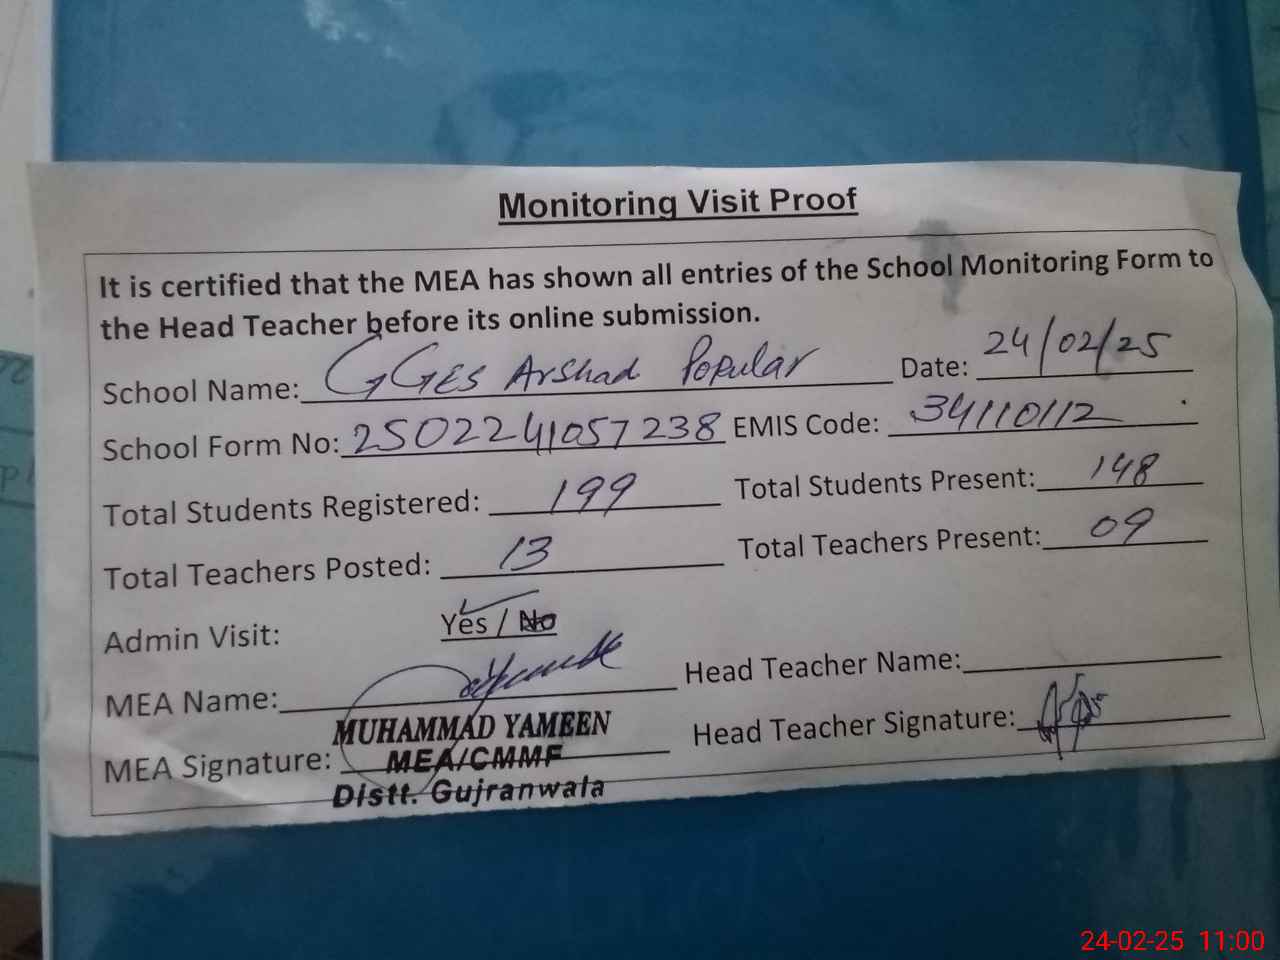 Monitoring Visit Proof
It is certified that the MEA has shown all entries of the School Monitoring Form to
the Head Teacher before its online submission.
School Name: GGES Arshad Popular Date: 24/02/25
School Form No: 2502241057238 EMIS Code: 34110112
Total Students Registered: 199 Total Students Present: 148
Total Teachers Posted: 13 Total Teachers Present: 09
Admin Visit: Yes / No
MEA Name: Head Teacher Name:
MUHAMMAD YAMEEN Head Teacher Signature:
MEA Signature: MEA/CMMF
Distt. Gujranwala
24-02-25 11:00